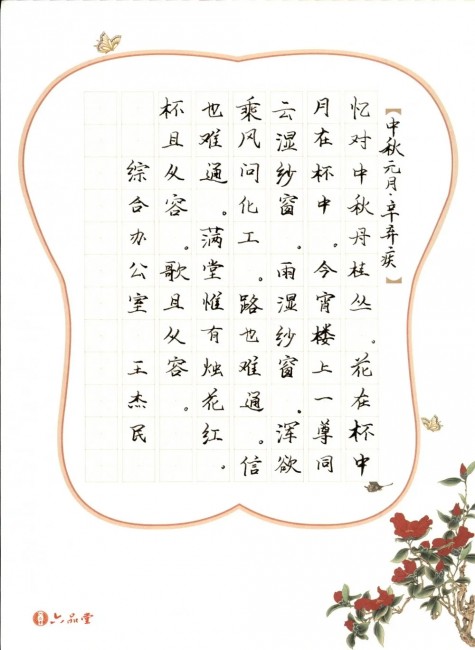 【中秋元月·辛弃疾】
忆对中秋丹桂丛。花在杯中
月在杯中。今宵楼上一尊同
云湿纱窗。雨湿纱窗。浑欲
乘风问化工。路也难通。信
也难通。满堂惟有烛花红。
杯且从容。歌且从容。
综合办公室 王杰民
六品堂